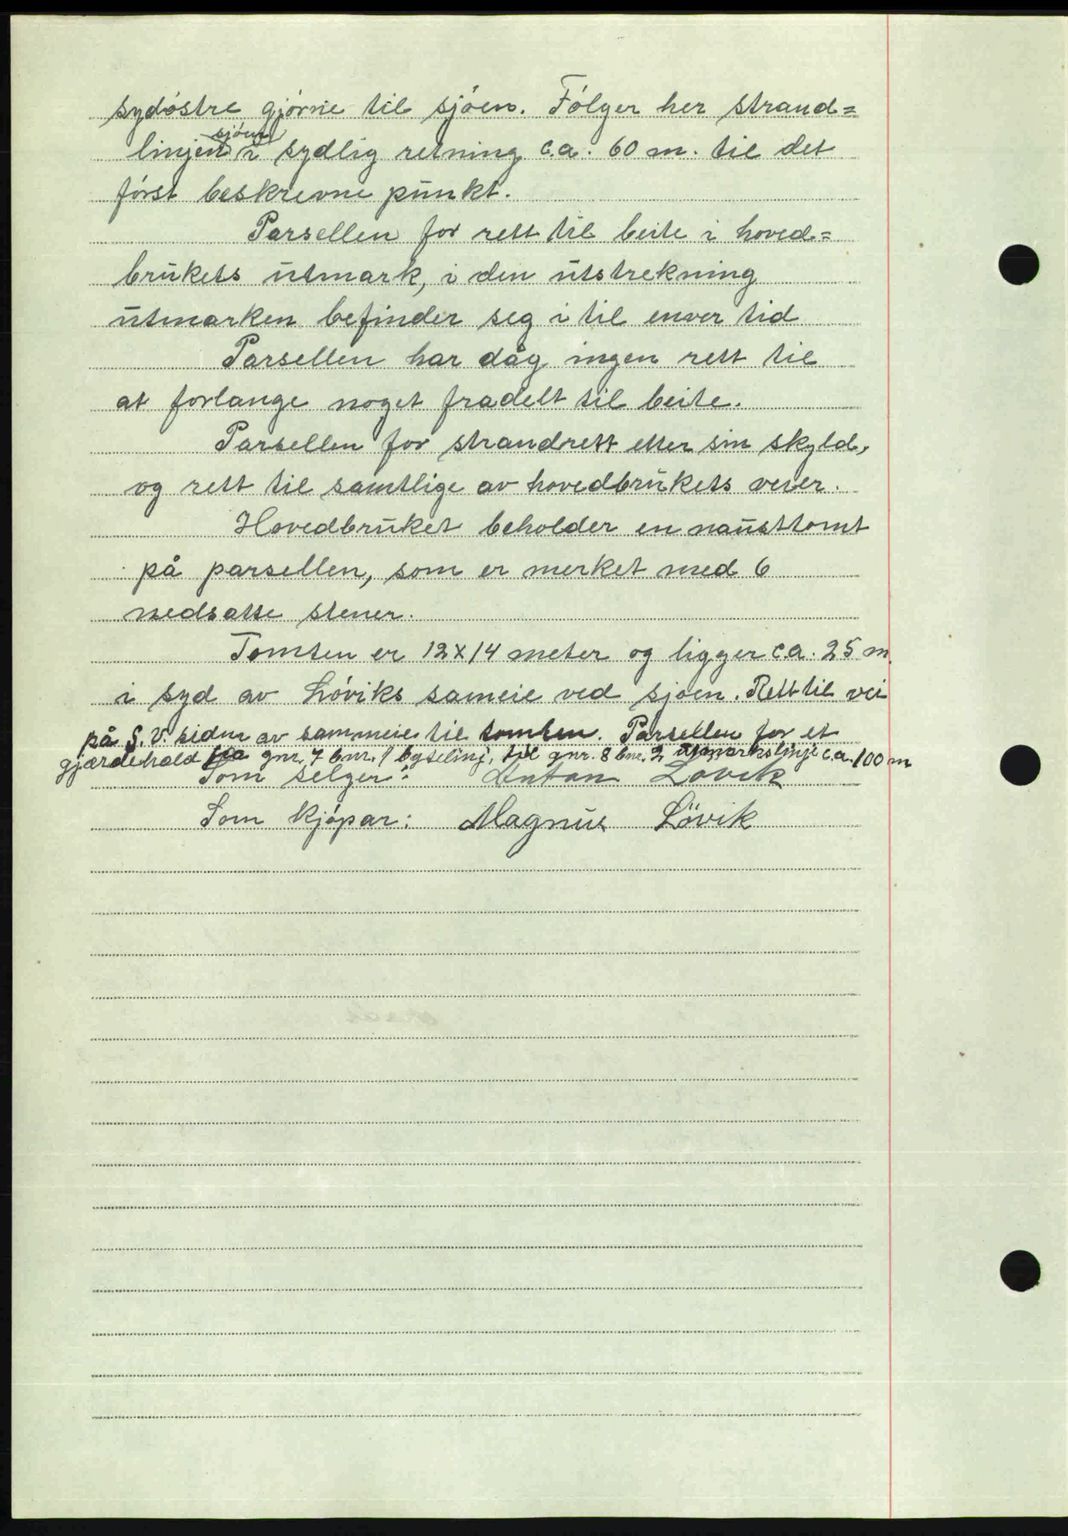 sydöstre gjörne til sjöen. Fölger her strand=
linjen sjöen i sydlig retning c.a. 60 m. til det
först beskrevne punkt.
Parsellen for rett til beite i hoved=
brukets utmark, i den utstrekning
utmarken befinder seg i til enver tid
Parsellen har dåg ingen rett til
at forlange noget fradelt til beite.
Parsellen for strandrett etter sin skyld,
og rett til samtlige av hovedbrukets veier.
Hovedbruket beholder en nausttomt
på parsellen, som er merket med 6
nedsatte stener.
Tomten er 12x14 meter og ligger ca. 25 m.
i syd av Löviks sameie ved sjöen. Rett til vei
på S.V. siden av sammeie til tomten. Parsellen for et
gjærdehald fra gnr. 7 bnr. 1 bytelinj. til gnr. 8 bnr. 2 c.a. 100 m
Som selger: Anton Lövik
Som kjöpar: Magnus Lövik